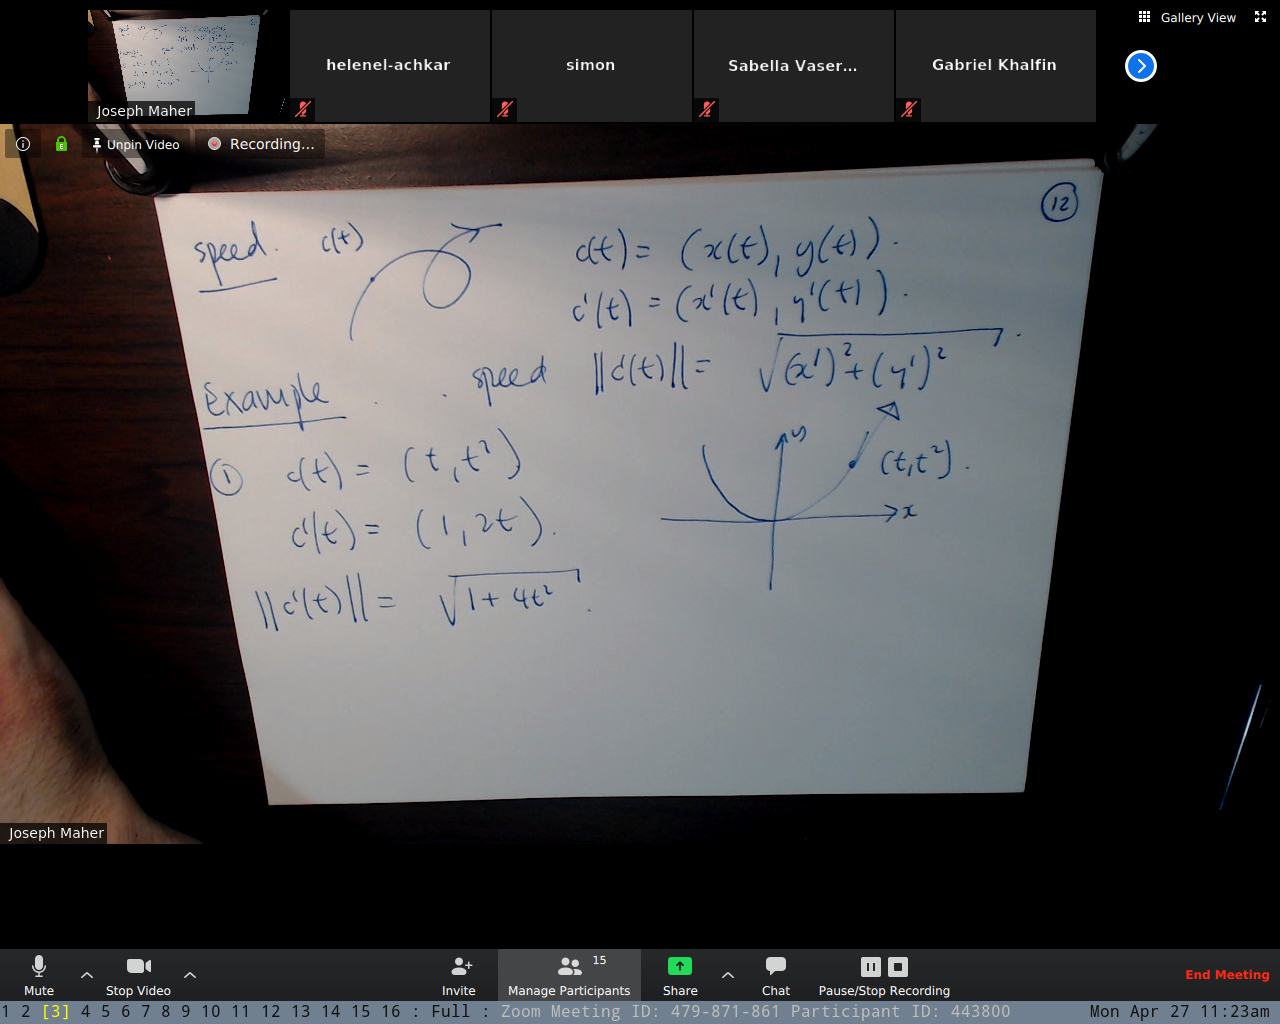 Gallery View
helenel-achkar
simon
Sabella Vaser...
Gabriel Khalfin
Joseph Maher
Unpin Video
Recording...
12
speed. c(t)
c(t) = (x(t), y(t)).
c'(t) = (x'(t), y'(t)).
speed ||c'(t)|| = √((x')²+(y')²).
Example
① c(t) = (t, t²)
y
(t, t²).
x
c'(t) = (1, 2t).
||c'(t)|| = √(1+4t²).
Joseph Maher
Mute
Stop Video
Invite
15
Manage Participants
Share
Chat
Pause/Stop Recording
End Meeting
1 2 [3] 4 5 6 7 8 9 10 11 12 13 14 15 16 : Full : Zoom Meeting ID: 479-871-861 Participant ID: 443800 Mon Apr 27 11:23am